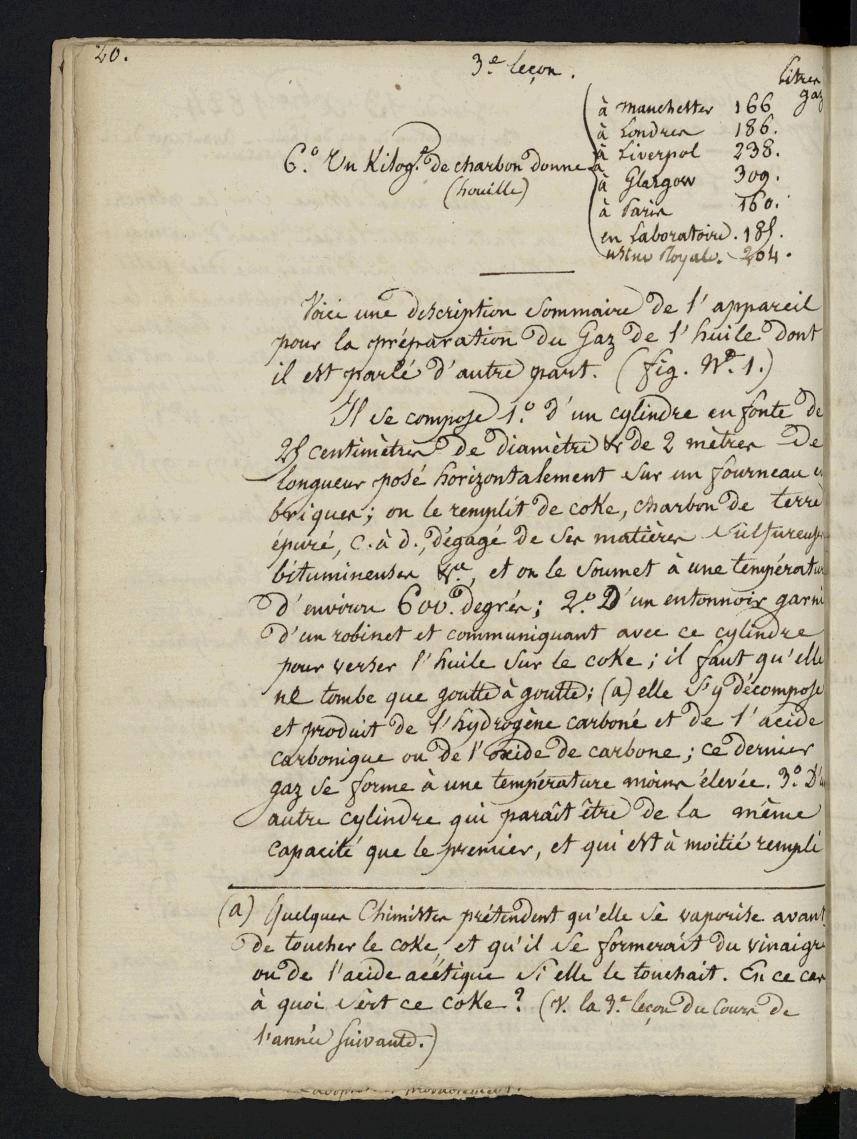 20.
3.e leçon.
Litres
gaz
à Manchester 166
à Londres 186.
à Liverpol 238.
6.° Un Kilog.e de charbon donne à Glasgow 309.
(houille)
à Paris 160.
en Laboratoire. 185.
usine Royale. 204.
Voici une description sommaire de l'appareil
pour la préparation du Gaz de l'huile dont
il est parlé d'autre part. (fig. N.° 1.)
Il se compose 1.° d'un cylindre en fonte de
25 centimètres de diamètre & de 2 mètres de
longueur posé horizontalement sur un fourneau
briques; on le remplit de coke, charbon de terre
épuré, c. à d., dégagé de ses matières sulfureuses
bitumineuses &.a, et on le soumet à une températu
d'environ 600. degrés; 2.° D'un entonnoir garni
d'un robinet et communiquant avec ce cylindre
pour verser l'huile sur le coke; il faut qu'elle
ne tombe que goutte à goutte: (a) elle s'y décompose
et produit de l'hydrogène carboné et de l'acide
carbonique ou de l'oxide de carbone; ce dernier
gaz se forme à une température moins élevée. 3.° D'u
autre cylindre qui paraît être de la même
capacité que le premier, et qui est à moitié rempli
(a) Quelques Chimistes prétendent qu'elle se vaporise avant
de toucher le coke, et qu'il se formerait du vinaigre
ou de l'acide acétique si elle le touchait. En ce cas
à quoi sert ce coke? (V. la 3.e leçon du Cours de
l'année suivante.)